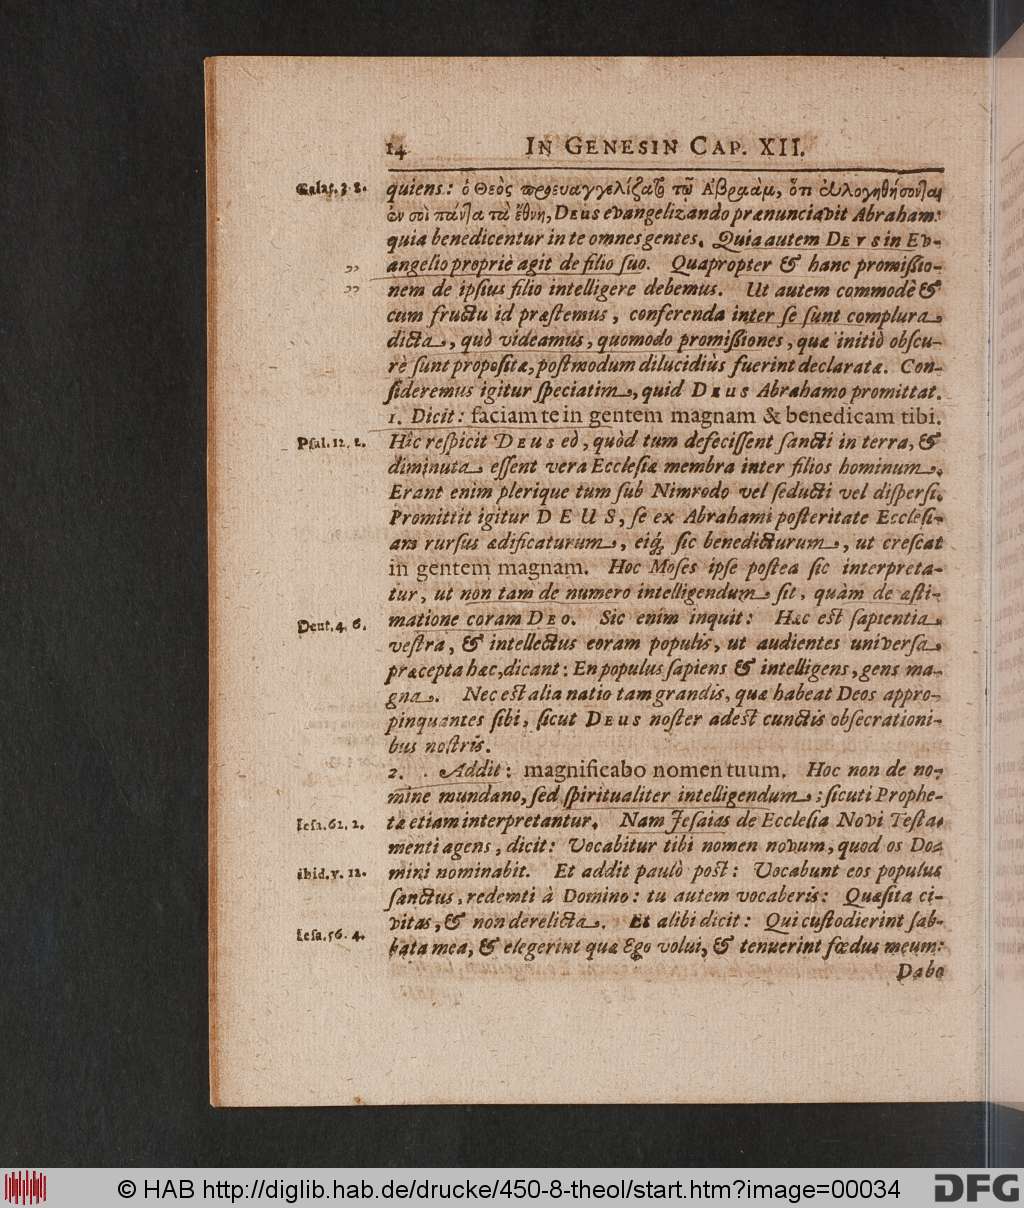 14 IN GENESIN CAP. XII.
Galat. 3. 8. quiens: ὁ Θεὸς προευαγγελίζατο τῷ Ἀβραὰμ, ὅτι ἐυλογηθήσονται
ἐν σοὶ πάντα τὰ ἔθνη, DEUS evangelizando prænunciavit Abraham:
quia benedicentur in te omnes gentes. Quia autem DEVS in Ev-
„ angelio propriè agit de filio suo. Quapropter & hanc promißio-
„ nem de ipsius filio intelligere debemus. Ut autem commodè &
cum fructu id præstemus, conferenda inter se sunt complura
dicta, quò videamus, quomodo promißiones, quæ initiò obscu-
rè sunt propositæ, postmodum dilucidiùs fuerint declaratæ. Con-
sideremus igitur speciatim, quid DEUS Abrahamo promittat.
1. Dicit: faciam te in gentem magnam & benedicam tibi.
Psal. 12. 2. Hîc respicit DEUS eò, quòd tum defecissent sancti in terra, &
diminuta essent vera Ecclesiæ membra inter filios hominum.
Erant enim plerique tum sub Nimrodo vel seducti vel dispersi.
Promittit igitur DEUS, se ex Abrahami posteritate Ecclesi-
am rursus ædificaturum, eiq́; sic benedicturum, ut crescat
in gentem magnam. Hoc Moses ipse postea sic interpreta-
tur, ut non tam de numero intelligendum sit, quàm de æsti-
Deut. 4. 6. matione coram DEO. Sic enim inquit: Hæc est sapientia
vestra, & intellectus coram populis, ut audientes universa
præcepta hæc, dicant: En populus sapiens & intelligens, gens ma-
gna. Nec est alia natio tam grandis, quæ habeat Deos appro-
pinquantes sibi, sicut DEUS noster adest cunctis obsecrationi-
bus nostris.
2. Addit: magnificabo nomen tuum. Hoc non de no-
mine mundano, sed spiritualiter intelligendum: sicuti Prophe-
Iesa. 62. 2. tæ etiam interpretantur. Nam Jesaias de Ecclesia Novi Testa-
menti agens, dicit: Vocabitur tibi nomen novum, quod os Do-
ibid. v. 12. mini nominabit. Et addit paulò pòst: Vocabunt eos populus
sanctus, redemti à Domino: tu autem vocaberis: Quæsita ci-
vitas, & non derelicta. Et alibi dicit: Qui custodierint sab-
Iesa. 56. 4. bata mea, & elegerint quæ Ego volui, & tenuerint fœdus meum:
Dabo
© HAB http://diglib.hab.de/drucke/450-8-theol/start.htm?image=00034 DFG